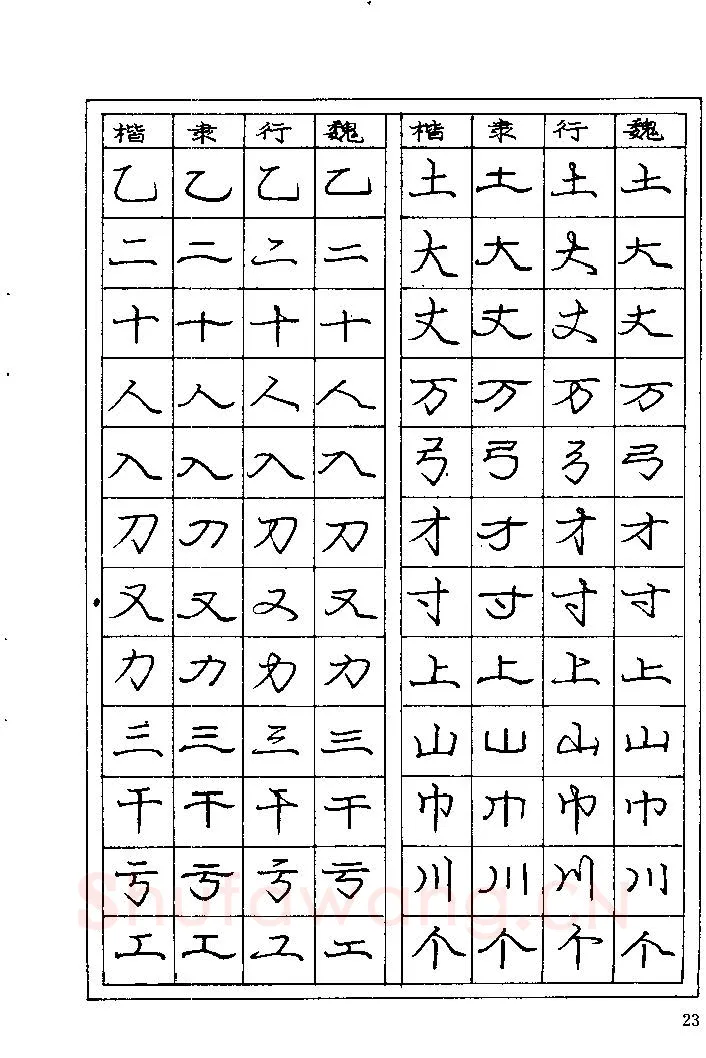 楷 隶 行 魏 楷 隶 行 魏
乙 乙 乙 乙 土 土 土 土
二 二 二 二 大 大 大 大
十 十 十 十 丈 丈 丈 丈
人 人 人 人 万 万 万 万
入 入 入 入 弓 弓 弓 弓
刀 刀 刀 刀 才 才 才 才
又 又 又 又 寸 寸 寸 寸
力 力 力 力 上 上 上 上
三 三 三 三 山 山 山 山
干 干 干 干 巾 巾 巾 巾
亏 亏 亏 亏 川 川 川 川
Shufawang.CN
工 工 工 工 个 个 个 个
23